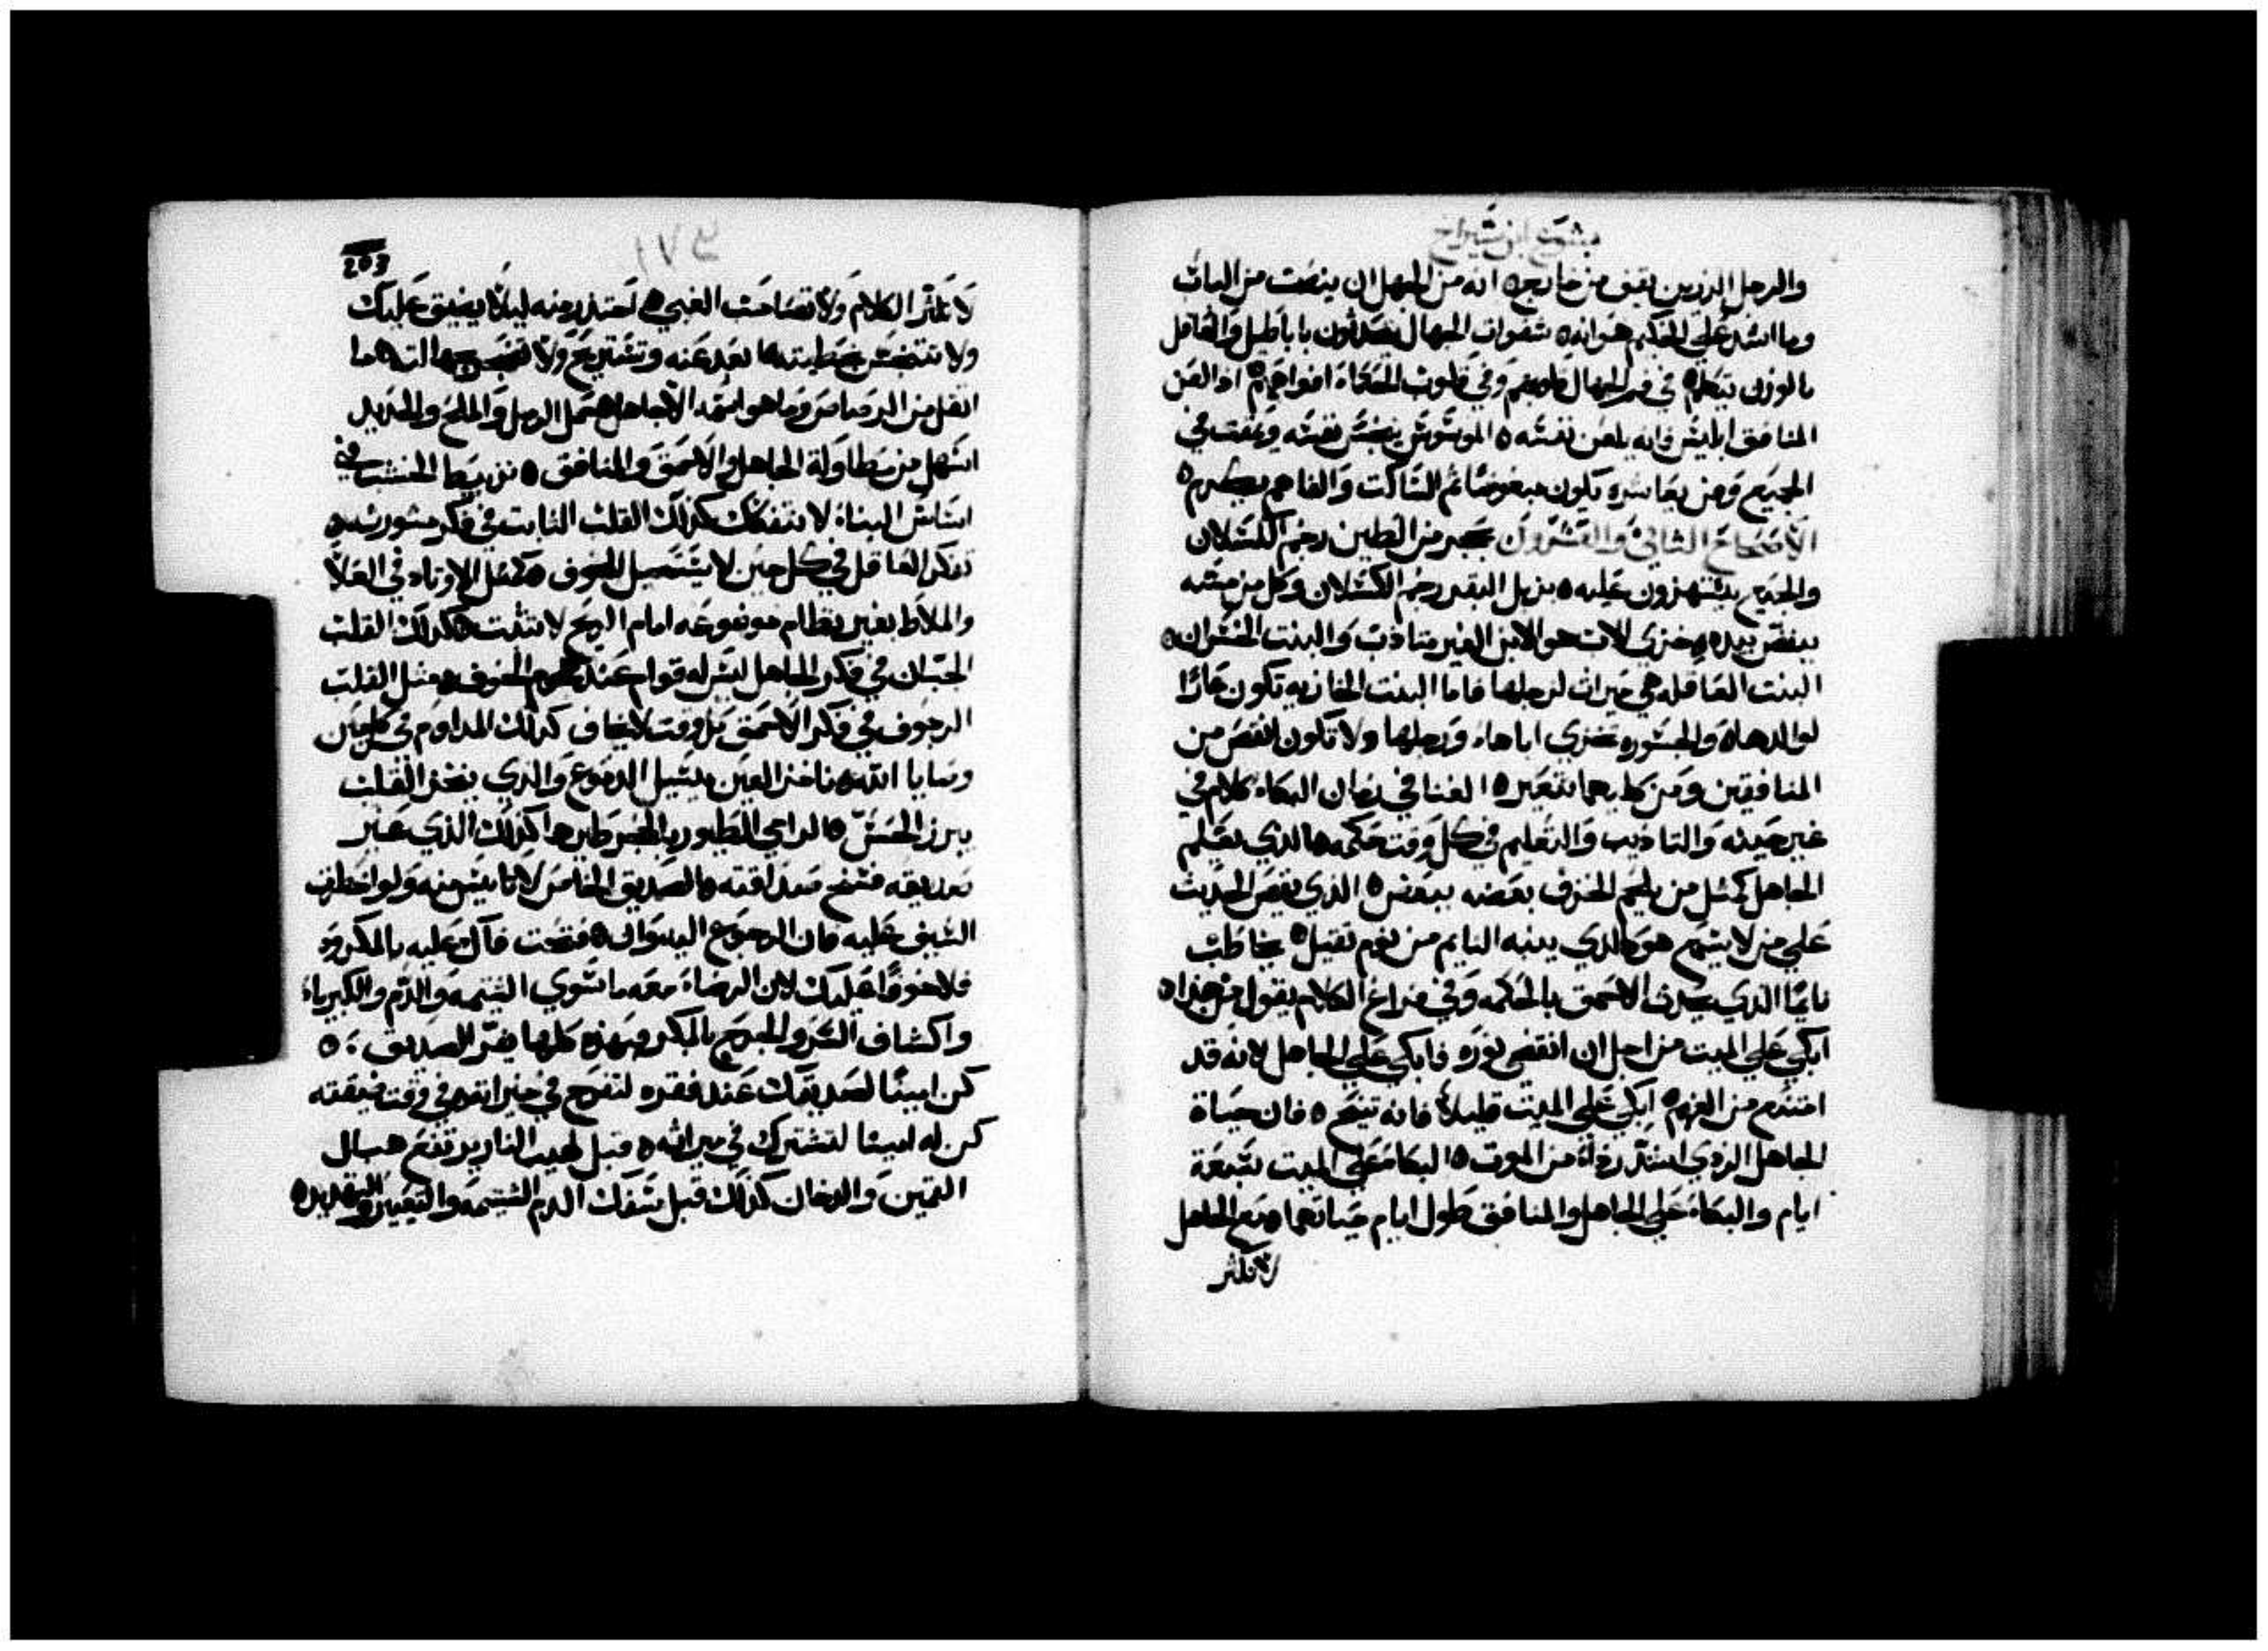 يشوع ابن شيراخ
والرجل الرزين يقف من خارج ٥ انه من الجهل ان ينصت من الباب
وما اشد علي الحكيم هوانه ٥ شفوات الجهال يتحدثون باباطيل والعاقل
بالوزن يتكلم ٥ في فم الجهال قلوبهم وفي قلوب الحكماء افواههم ٥ اذا لعن
المنافق ابليس فانه يلعن نفسه ٥ الموسوس ينجس نفسه ويمقت في
الجميع ومن يعاشره يكون مبغوضا ثم الساكت والفاهم يكرم ٥
الاصحاح الثاني والعشرون بحجر من الطين رجم الكسلان
والجميع يستهزون عليه ٥ بزبل البقر رجم الكسلان وكل من مسه
ينفض يده ٥ خزي الاب هو الابن الغير متادب والبنت الخسران ٥
البنت العاقله هي ميراث لرجلها فاما البنت الخازيه تكون عارا
لوالدها ٥ والجسوره تخزي اباها ورجلها ولا تكون انقص من
المنافقين ومن كليهما تتعير ٥ الغنا في زمان البكاء كلام في
غير حينه والتاديب والتعليم في كل وقت حكمه ٥ الذي يعلم
الجاهل كمثل من يلحم الخزف بعضه ببعض ٥ الذي يقص الحديث
علي من لا يسمع هو كالذي ينبه النايم من نوم ثقيل ٥ يخاطب
نايما الذي يحدث الاحمق بالحكمه وفي فراغ الكلام يقول من هذا ٥
ابكي علي الميت من اجل ان انقضي نوره وابكي علي الجاهل لانه قد
انتدم من الفهم ٥ ابكي علي الميت قليلا فانه تنيح ٥ فان حياة
الجاهل الردي اشد رداة من الموت ٥ البكا علي الميت سبعة
ايام والبكاء علي الجاهل والمنافق طول ايام حياتهما ٥ مع الجاهل
لا تكثر
203
لا تكثر الكلام ولا تصاحب الغبي ٥ احتذر منه ليلا يضيق عليك
ولا تتنجس بخطيته ٥ ابعد عنه وتستريح ولا تضجر بجهالته ٥ ما
اثقل من الرصاص وما هو اسمه الا جاهل ٥ حمل الرمل والملح والحديد
اسهل من مطاولة الجاهل والاحمق والمنافق ٥ من ربط الخشب في
اساس البناء لا يتفكك كذلك القلب الثابت في فكر مشورته ٥
تفكر العاقل في كل حين لا يستحيل للخوف ٥ كمثل الاوتاد في العلا
والملاط بغير نظام موضوعه امام الريح لا تثبت ٥ كذلك القلب
الجبان في فكر الجاهل ليس له قوام عند هجوم الخوف ٥ مثل القلب
الرجوف في فكر الاحمق كل وقت لا يخاف كذلك المداوم في كل حين
وصايا الله ٥ ناخز العين يسيل الدموع والذي ينخز القلب
يبرز الحس ٥ الرامي الطيور بالحجر طيرها كذلك الذي عير
صديقه فسخ صداقته ٥ الصديق الخالص لا تايس منه ولو اخطف
السيف عليه فان الرجوع اليه سوا ٥ فتحت فاك عليه بالمكروه
فلا خوفا عليك لان الرضاء معه ما سوي الشتيمه والذم والكبرياء
واكشاف السر والجرح بالمكر فهذه كلها يفر الصديق ٥
كن امينا لصديقك عند فقره لتفرح في خيراته ٥ في وقت ضيقته
كن له امينا لتشترك في ميراثه ٥ قبل لهيب النار يرتفع حبال
القمين والدخان كذلك قبل سفك الدم الشتيمه والتعيير والتهديد ٥